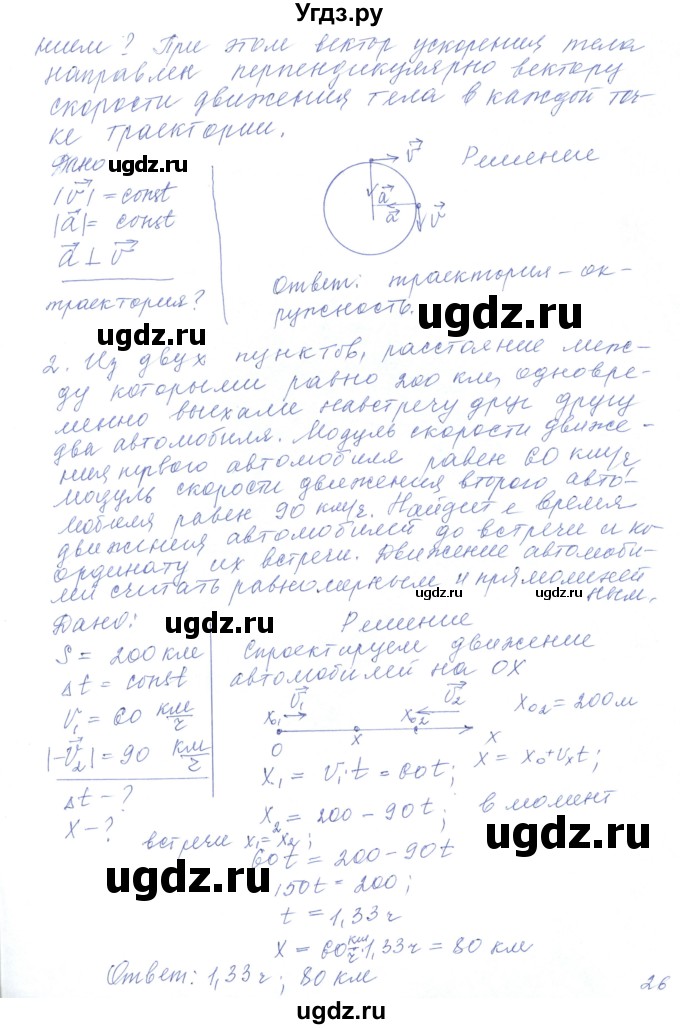 Угдз.ру
нием? При этом вектор ускорения тела
направлен перпендикулярно вектору
скорости движения тела в каждой точ-
ке траектории.
Дано
ugdz.ru
ugdz.ru
Решение
|v⃗| = const
|a⃗| = const
a⃗ ⊥ v⃗
траектория?
v⃗
a⃗
a⃗
v⃗
Ответ: траектория - ок-
ружность.
ugdz.ru
ugdz.ru
2. Из двух пунктов, расстояние меж-
ду которыми равно 200 км, одновре-
менно выехали навстречу друг другу
два автомобиля. Модуль скорости движе-
ния первого автомобиля равен 60 км/ч
модуль скорости движения второго авто-
мобиля равен 90 км/ч. Найдите время
движения автомобилей до встречи и ко-
ординату их встречи. Движение автомоби-
лей считать равномерным и прямолиней
ным.
ugdz.ru
ugdz.ru
ugdz.ru
ugdz.ru
Дано:
Решение
S = 200 км
Δt = const
V₁ = 60 км/ч
|-V⃗₂| = 90 км/ч
Δt - ?
X - ?
Спроектируем движение
автомобилей на OX
x₀₁ v⃗₁ x₀₂ v⃗₂ X₀₂ = 200м
0 x x
X₁ = V₁·t = 60t; X = X₀+Vₓt;
X₂ = 200 - 90t; в момент
встречи x₁ = x₂;
60t = 200 - 90t
150t = 200;
t = 1,33 ч
X = 60 км/ч · 1,33 ч = 80 км
Ответ: 1,33 ч; 80 км
ugdz.ru
ugdz.ru
ugdz.ru
26
ugdz.ru